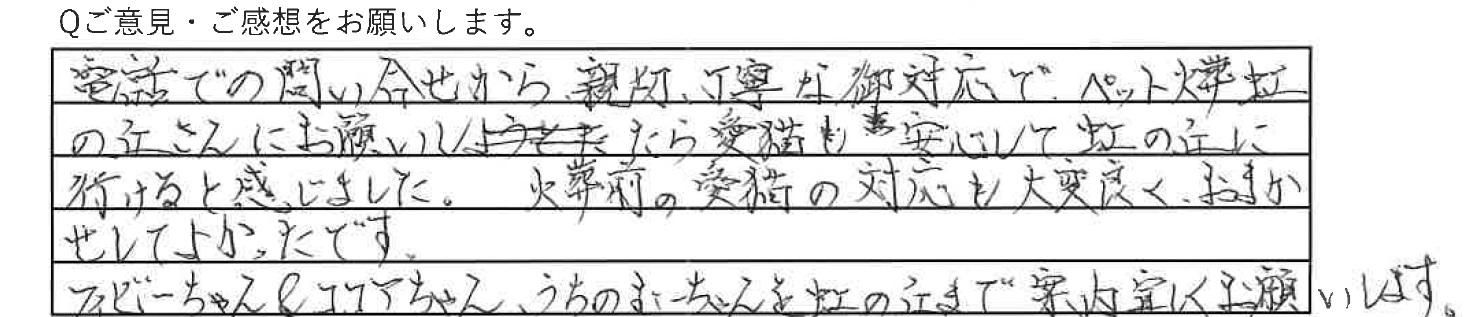 Qご意見・ご感想をお願いします。
電話での問い合せから、親切、丁寧な御対応で、ペット火葬虹
の丘さんにお願いしたら愛猫も安心して虹の丘に
行けると感じました。 火葬前の愛猫の対応も大変良く、おまか
せしてよかったです。
フィビーちゃん&ココアちゃん、うちのまーちゃんを虹の丘まで案内宜しくお願いします。